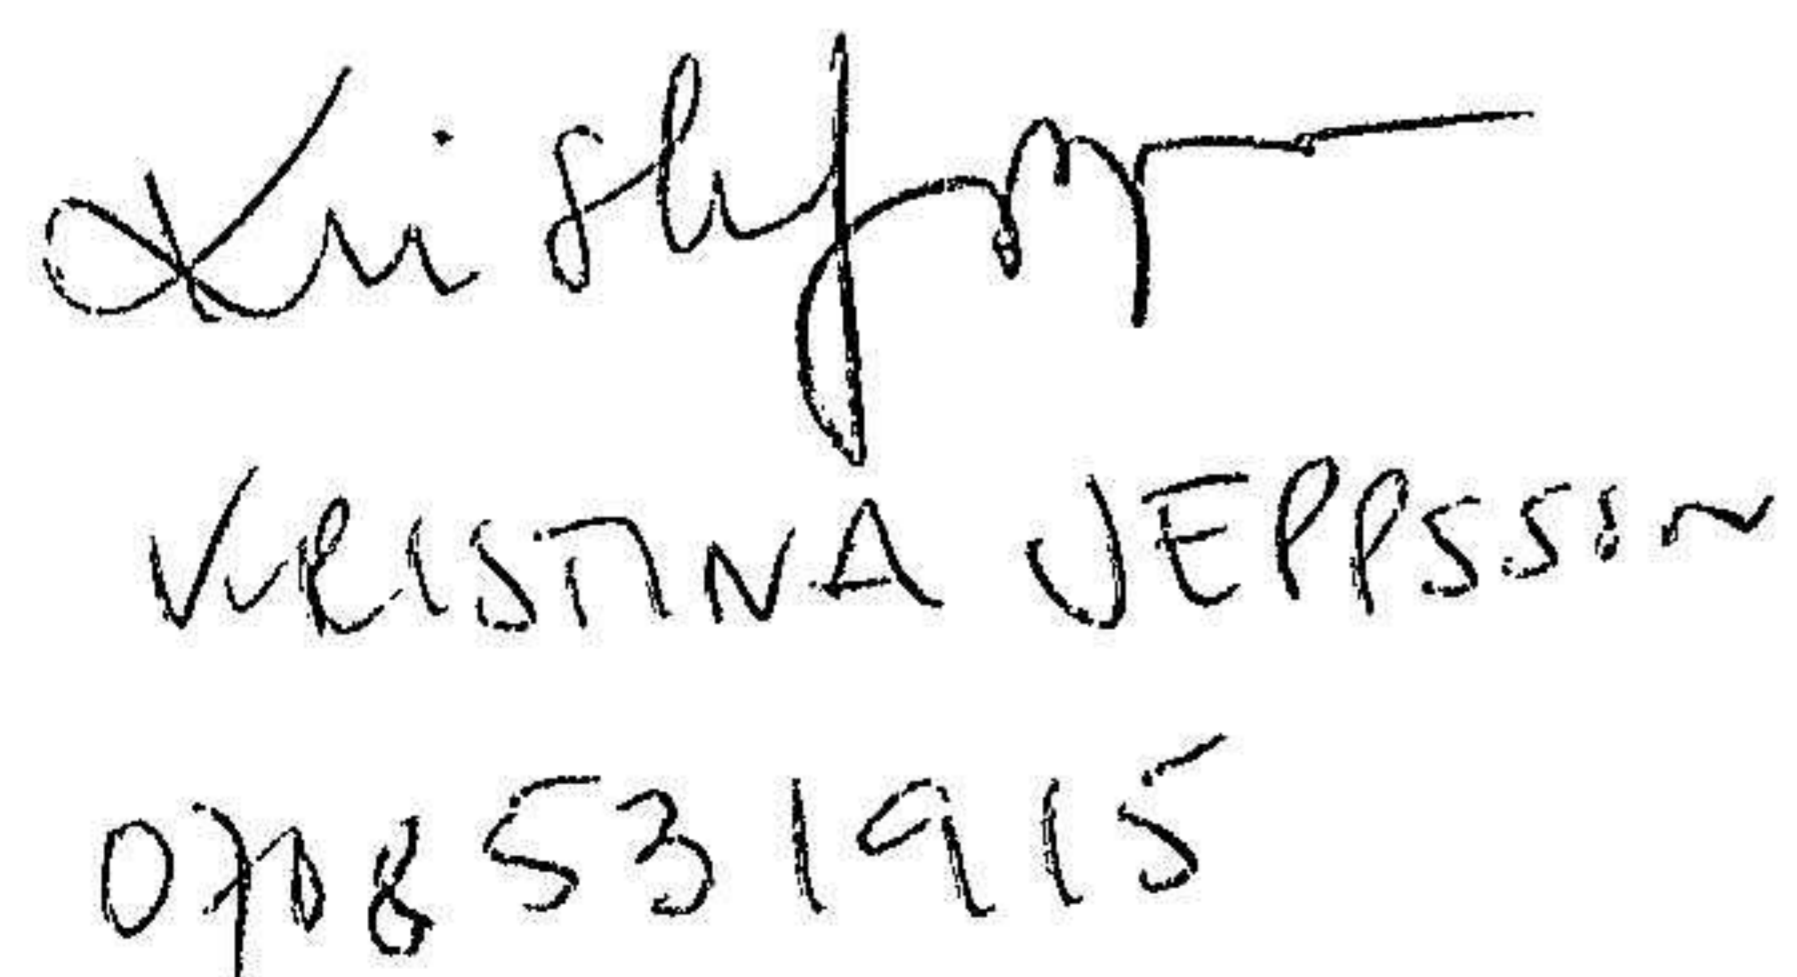 KRISTINA JEPPSSON
0708531915